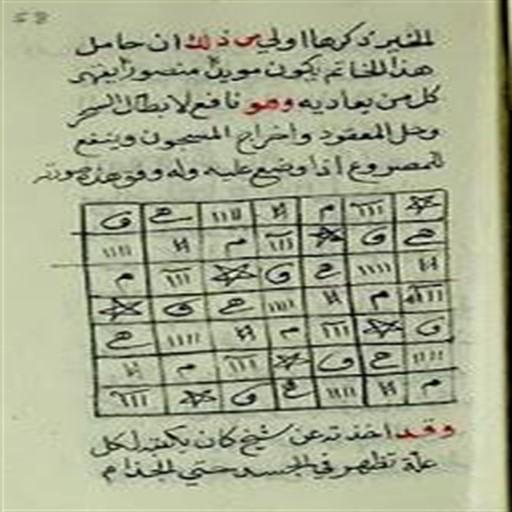 الخير ذكرها اولي من ذلك ان حامل
هذا الخاتم يكون مويدا منصورا يقهر
كل من يعاديه وهو نافع لابطال السحر
وحل المعقود واخراج المسجون وينفع
للمصروع اذا وضع عليه وله وفق هذه صورته
وقد اخذته عن شيخ كان يكتبه لكل
علة تظهر في الجسد حتي الجذام